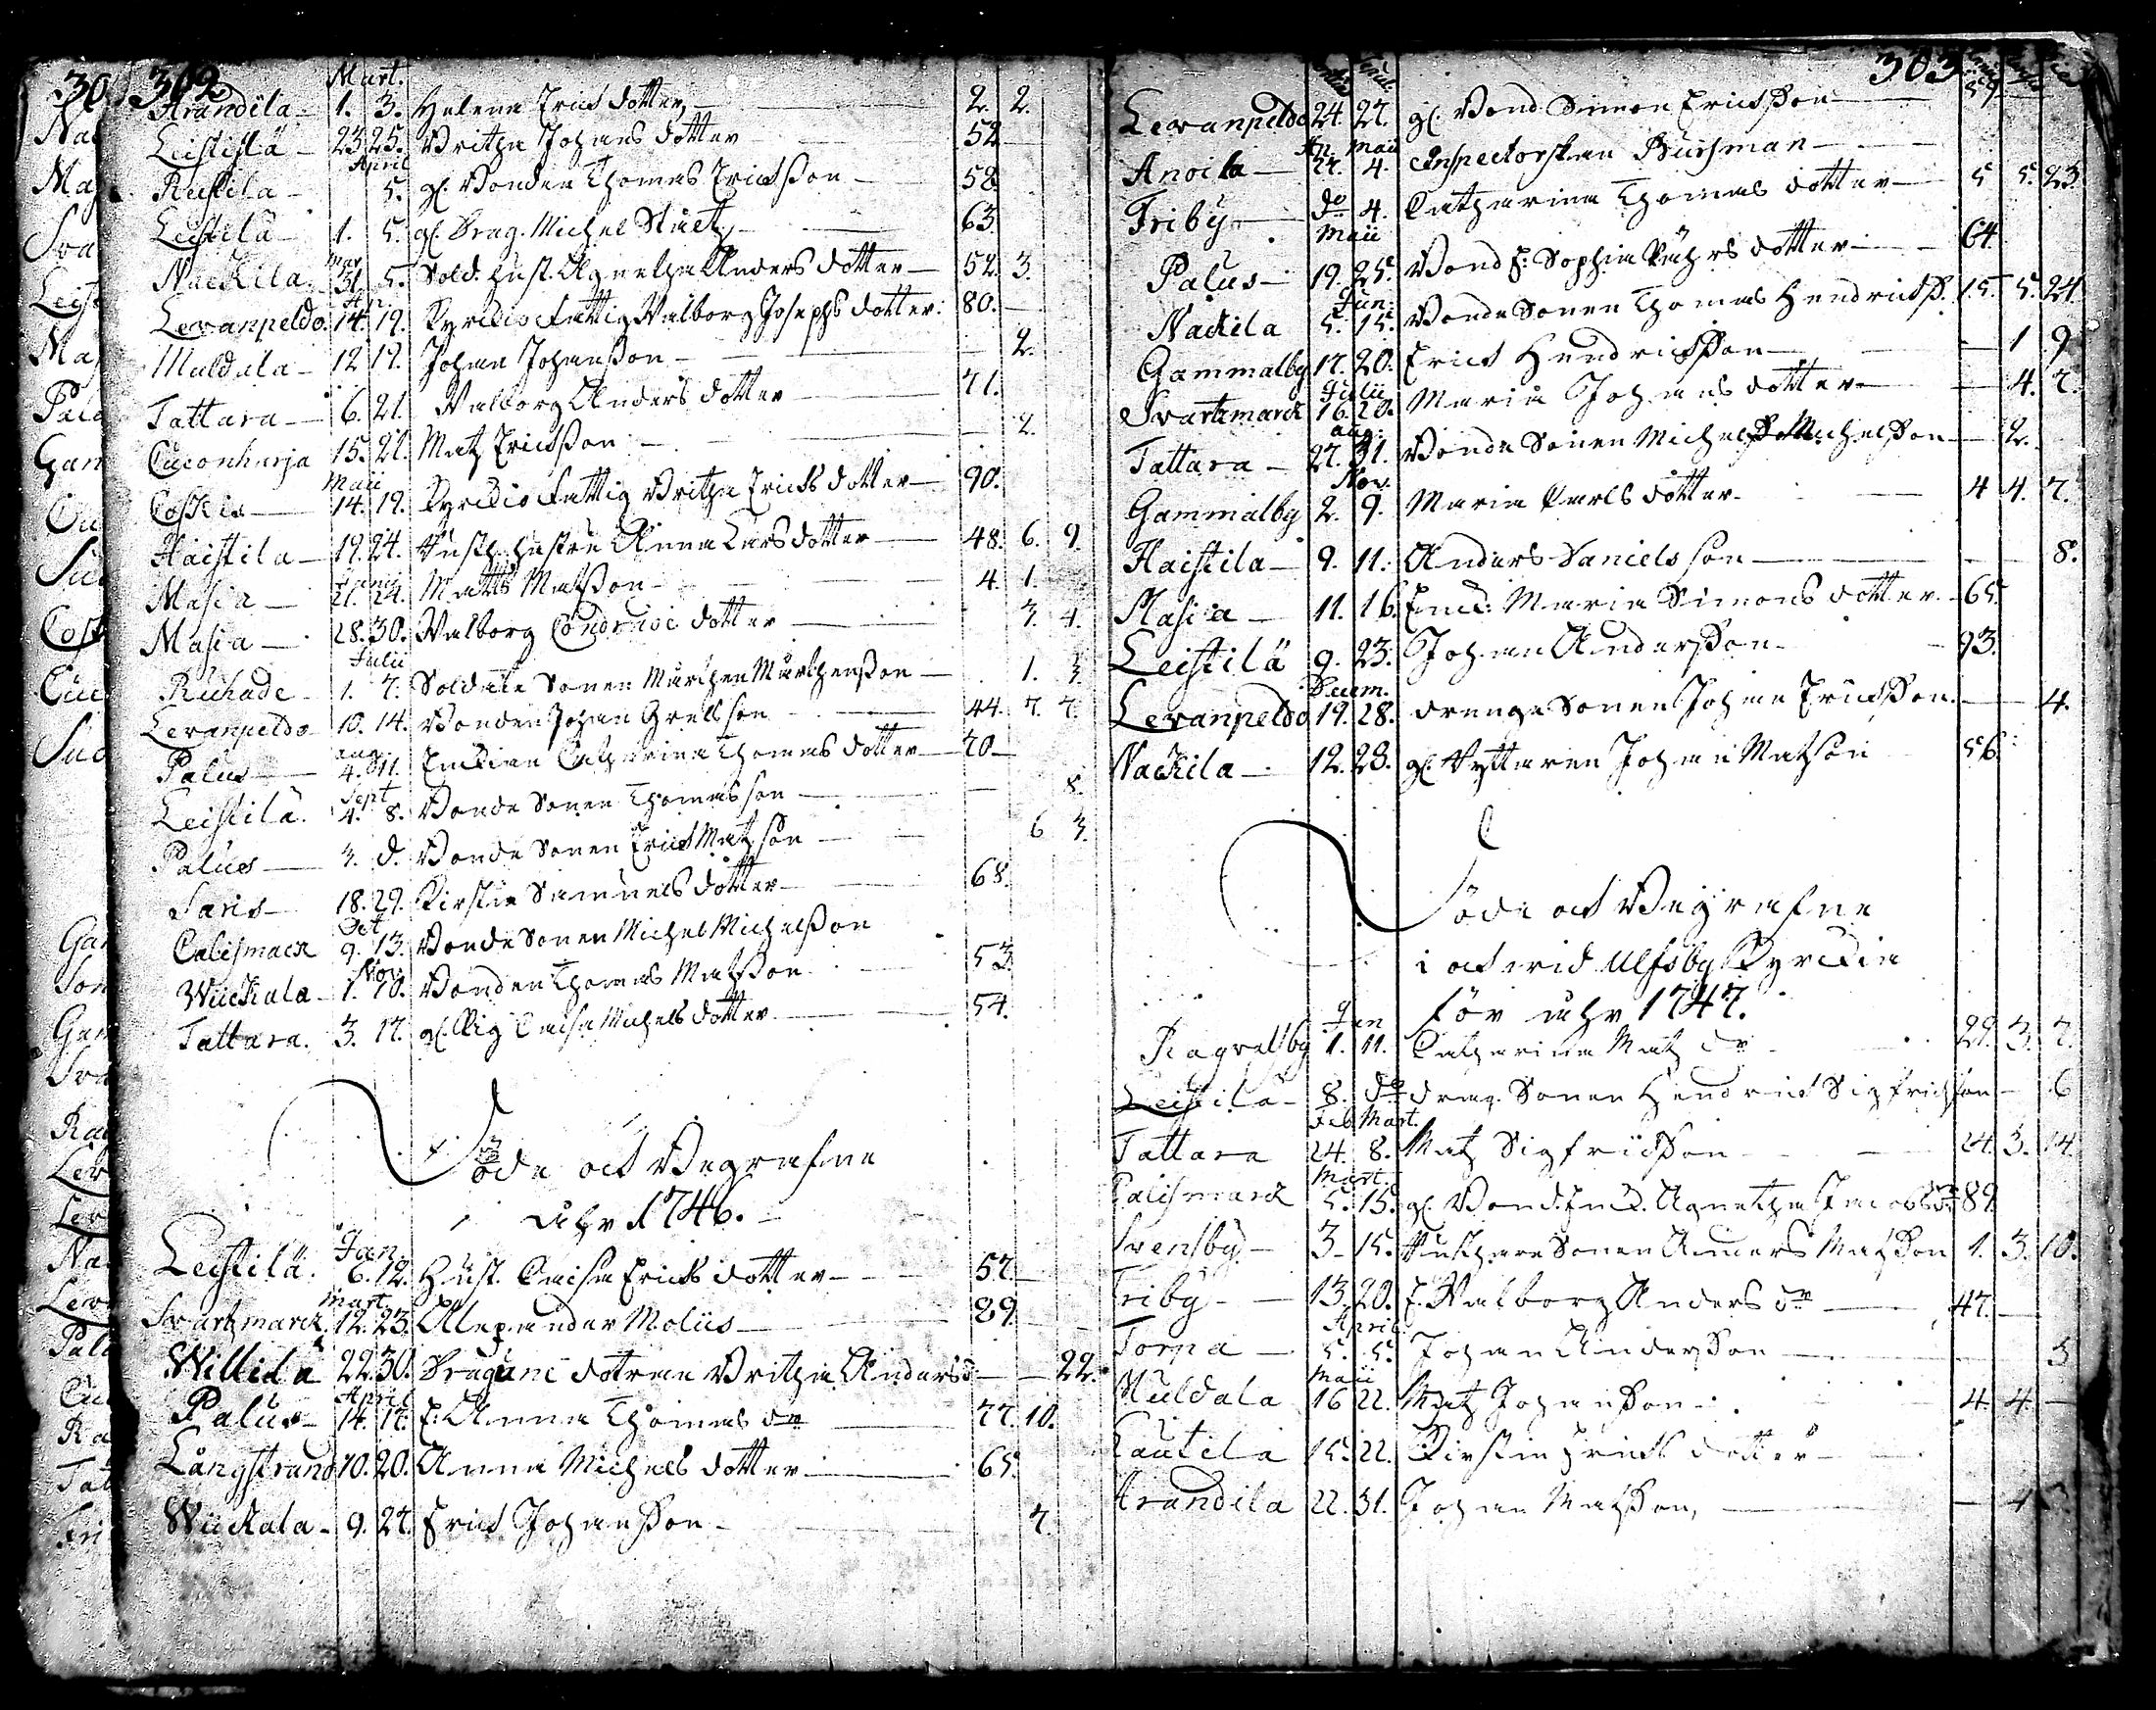 302
Mart.
Arandila 1. 3. Helena Ericks dotter 2. 2.
Leistilä 23 25. Britha Johans dotter 52
April
Ruskila 5. gl. Bonden Thomas Ericksson 58
Leistilä 1. 5. gl. Drag. Michel Stuet 63.
Mar
Nackila 31 5. Sold. hust. Agnetha Anders dotter 52. 3.
Ap.
Levanpeldo. 14. 19. Kyrckio fattig Valborg Josephs dotter. 80.
Muldala 12 19. Johan Johansson 2.
Tattara 6. 21. Valborg Anders dotter 71.
Cuconharja 15. 21. Matz Ericksson 2.
Maii
Coskis 14. 19. Kyrckio fattig Britha Ericks dotter 90.
Haistila 19. 24. hustru Anna Lars dotter 48. 6. 9.
Junii
Masia 21. 24. Matts Matsson 4. 1.
Masia 28. 30. Valborg dotter 3. 4.
Julii
Ruhade 1. 7. Soldate Sonen Marthen Marthensson 1. 3.
Levanpeldo 10. 14. Bonden Johan Grelsson 44. 7. 7.
aug.
Palus 4. 11. Enckian Catharina Thomas dotter 70
Sept
Leistilä. 4. 8. Bonde Sonen Thomasson 8.
Palus 3. d. Bonde Sonen Erick Matzson 6 3.
Saris 18. 29. Kirstin Samuels dotter 68.
Oct
Calismack 9. 13. Bonde Sonen Michel Michelsson
Nov.
Wiickala 1. 10. Bonden Thomas Matsson 53.
Tattara. 3. 17. gl. Pig. Caisa Michels dotter 54.
Döde och Begrafne
Åhr 1746.
Jan.
Leistilä. 6. 12. Hust. Caisa Ericks dotter 57.
Mart
Svartzmarck. 12. 23. Alexander Moliis 89.
Willila 22. 30. Dragune dotren Britha Anders d. 22.
April
Palus 14. 17. E. Anna Thomas dr 77. 10.
Långstrand 10. 20. Anna Michels dotter 65.
Wiickala 9. 27. Erick Johansson 7.
303
Levanpeldo 24. 27. gl. Bond Simon Ericksson 59
Ap. Maii
Anoila 27. 4. Inspectorskan Bursman
Friby do 4. Catharina Thomas dotter 5 5. 23.
Maii
Palus 19. 25. Bond E: Sophia dotter 64.
Jun.
Nackila 5. 15. Bonde Sonen Thomas Hendricks. 15. 5. 24.
Gammalby 17. 20. Erick Hendricksson 1 9
Julii
Svartzmarck 16. 20. Maria Johans dotter 4. 7.
aug:
Tattara 27. 31. Bonde Sonen Michel Michelsson 2.
Nov.
Gammalby 2. 9. Maria Carls dotter 4 4. 7.
Haistila 9. 11. Anders Daniels son 8.
Masia 11. 16. Enck: Maria Simons dotter 65.
Leistilä 9. 23. Johan Andersson 93.
Decem.
Levanpeldo 19. 28. drenge Sonen Johan Ericksson. 4.
Nackila 12. 28. gl. Ryttaren Johan Matson 56.
Döde och Begrafne
i och wid Ulfsby Kyrckia
för åhr 1747.
Jan
Ragvalsby 1. 11. Catharina Matz dr 29. 3. 7.
Leistila 8. do drag. Sonen Hendrick Sigfrichson 6
Feb Mart.
Tattara 24. 8. Matz Sigfridsson 24. 3. 14.
Mart.
Calismarck 5. 15. gl. Bond. Enck. Agnetha Jacobs dr 89.
Svensby 3 15. Sonen Anders Matsson 1. 3. 10.
Friby 13. 20. E. Valborg Anders dr 47.
April
Torpa 5. 5. Johan Andersson 3
Maii
Muldala 16 22. Matz Johansson 4. 4.
Lautila 15. 22. Kirstin Ericks dotter
Arandila 22. 31. Johan Matsson, 4 3